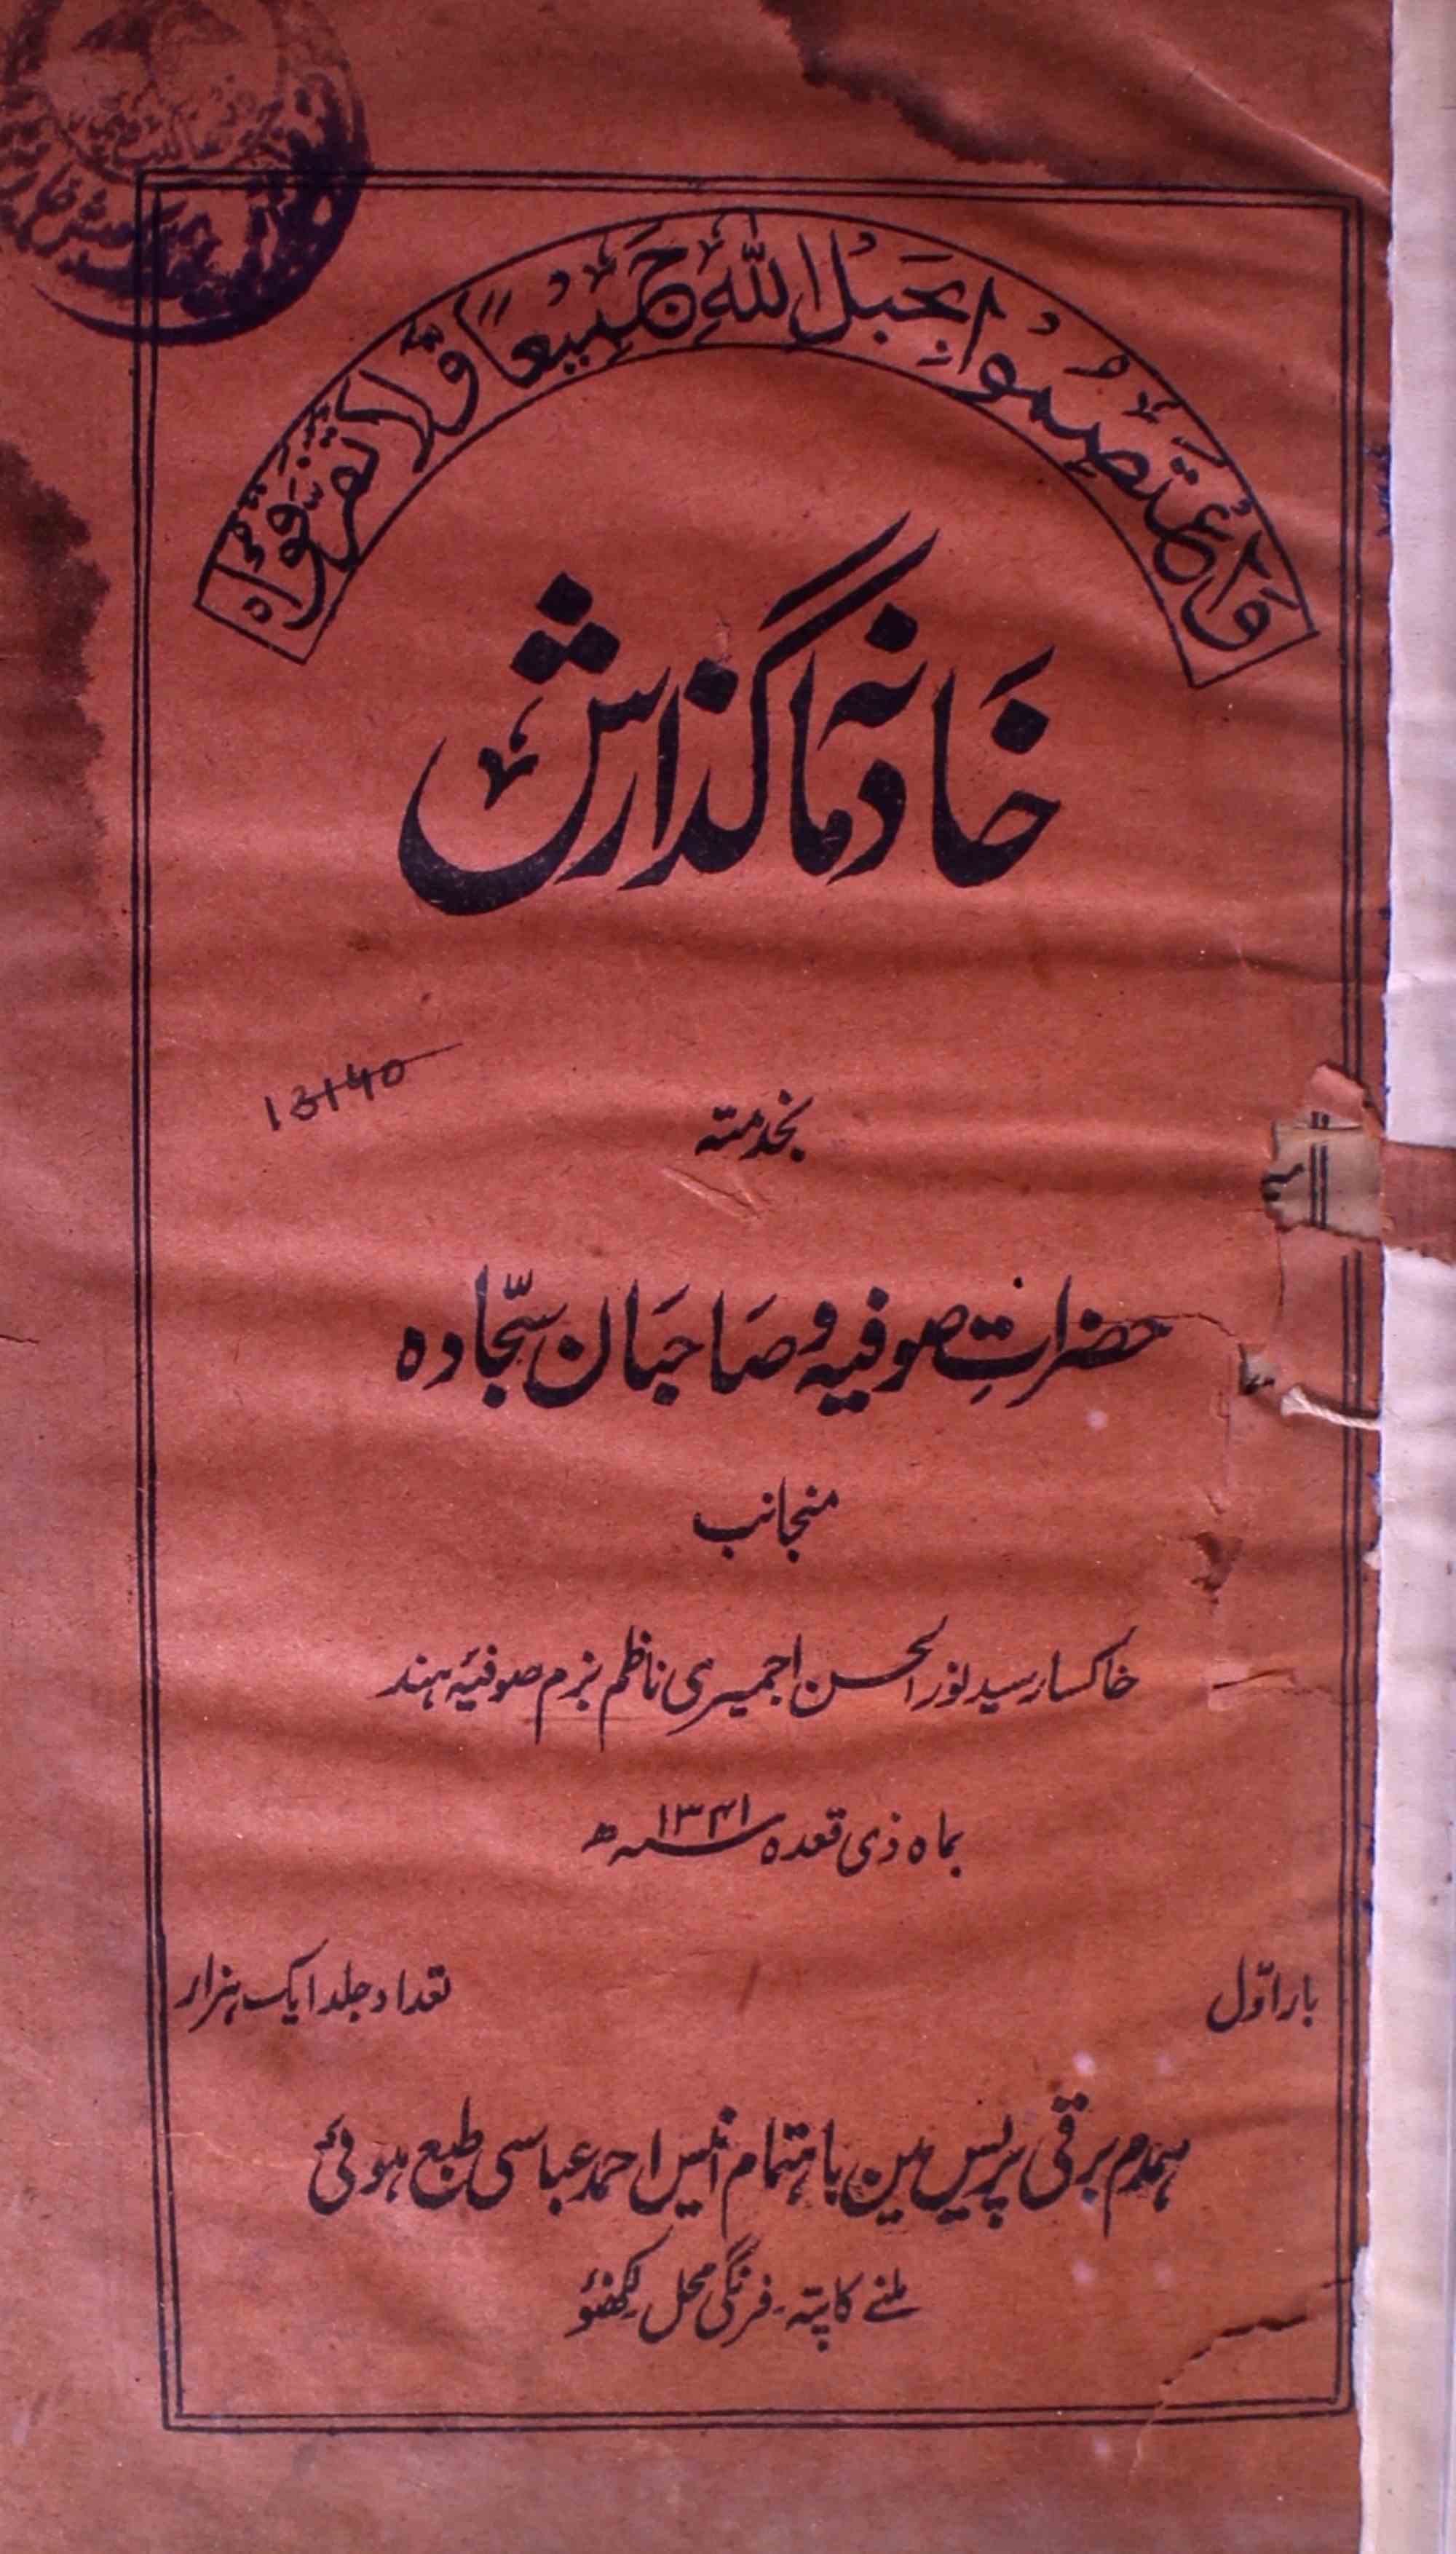 وَاعْتَصِمُوا بِحَبْلِ اللّٰهِ جَمِيعًا وَّلَا تَفَرَّقُوا
خادمانہ گذارش
13140
بخدمتہ
حضراتِ صوفیہ و صاحبان سجّادہ
منجانب
خاکسار سید نور الحسن اجمیری ناظم بزم صوفیۂ ہند
بماہ ذی قعدہ ۱۳۴۱ھ
بار اوّل
تعداد جلد ایک ہزار
ہمدم برقی پریس مین باہتمام انیس احمد عباسی طبع ہوئی
ملنے کا پتہ۔ فرنگی محل لکھنؤ